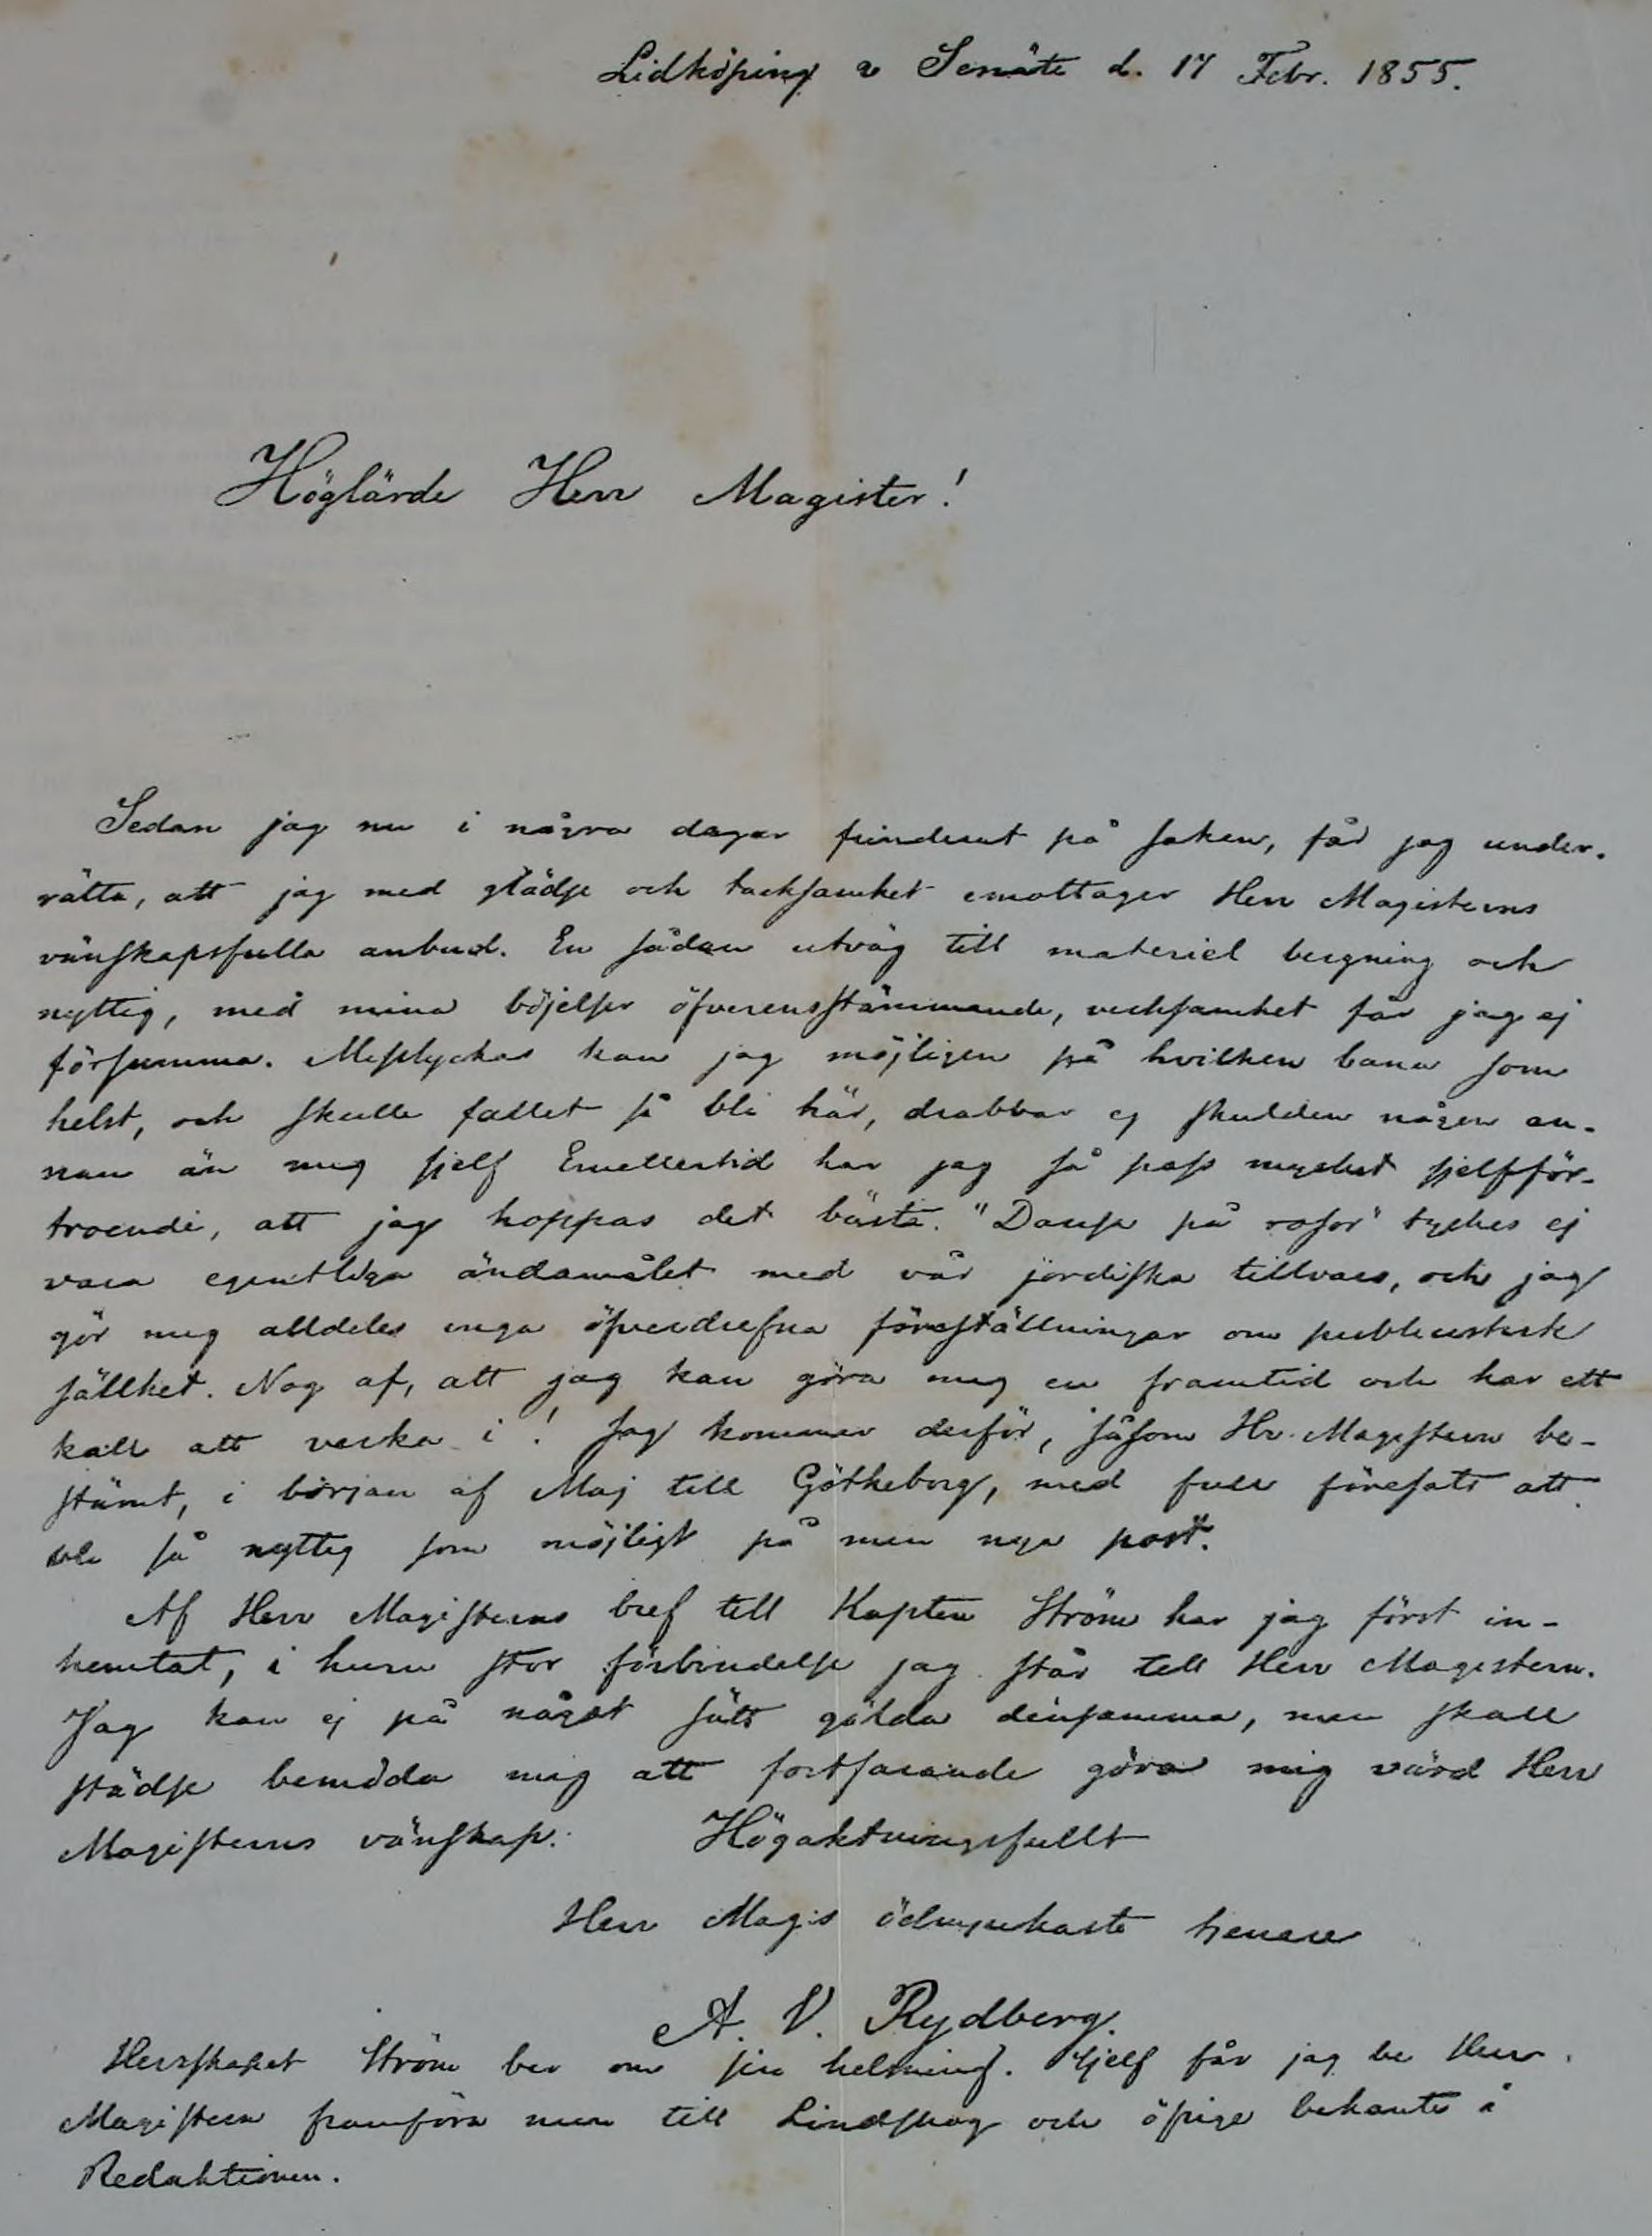 Lidköping & Senäte d. 17 Febr. 1855.
Höglärde Herr Magister!
Sedan jag nu i några dagar funderat på saken, får jag under-
rätta, att jag med glädje och tacksamhet emottager Herr Magisterns
vänskapsfulla anbud. En sådan utväg till materiel bergning och
nyttig, med mina böjelser öfverensstämmande, verksamhet får jag ej
försumma. Misslyckas kan jag möjligen på hvilken bana som
helst, och skulle fallet så bli här, drabbar ej skulden någon an-
nan än mig sjelf Emellertid har jag så pass mycket sjelfför-
troende, att jag hoppas det bästa. "Dansa på rosor" tyckes ej
vara egentliga ändamålet med vår jordiska tillvaro, och jag
gör mig alldeles inga öfverdrefna föreställningar om publicistisk
sällhet. Nog af, att jag kan göra mig en framtid och har ett
kall att verka i! Jag kommer derför, såsom Hr. Magistern be-
stämt, i början af Maj till Götheborg, med full föresats att
bli så nyttig som möjligt på min nya post.
Af Herr Magisterns bref till Kapten Ström har jag först in-
hemtat, i huru stor förbindelse jag står till Herr Magistern.
Jag kan ej på något sätt gälda densamma, men skall
städse bemöda mig att fortfarande göra mig värd Herr
Magisterns vänskap. Högaktningsfullt
Herr Mag:s ödmjukaste tjenare
A. V. Rydberg.
Herrskapet Ström ber om sin helsning. Sjelf får jag be Herr
Magistern framföra min till Lindskog och öfrige bekante i
Redaktionen.